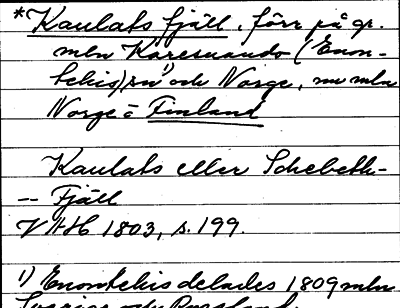 *Kaulats fjäll, förr på gr.
mln Karesuando (Enon-
tekis) sn¹⁾ och Norge, nu mln
Norge o Finland
Kaulats eller Schebeth-
-- Fjäll
VAH 1803, s. 199.
1) Enontekis delades 1809 mln
Sverige och Ryssland